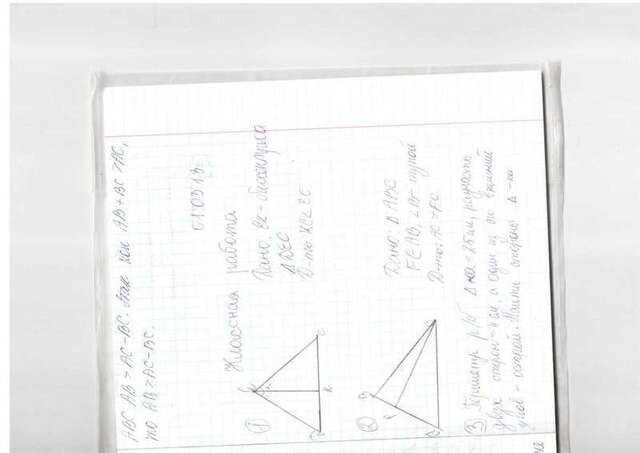 ABC AB > AC-BC. так как AB+BC > AC,
то AB > AC-BC.
01.03.13
Классная работа
①
Дано: EK - биссектриса
Δ DEC
Д-ть: KC < EC
E
D
K
C
②
Дано: Δ ABC
F ∈ AB, ∠B - тупой
Д-ть: AC > FC
B
F
C
③ Периметр р/б Δ-ка = 25 см, разность
двух сторон - 4 см, а один из его внешних
углов - острый. Найти стороны Δ-ка